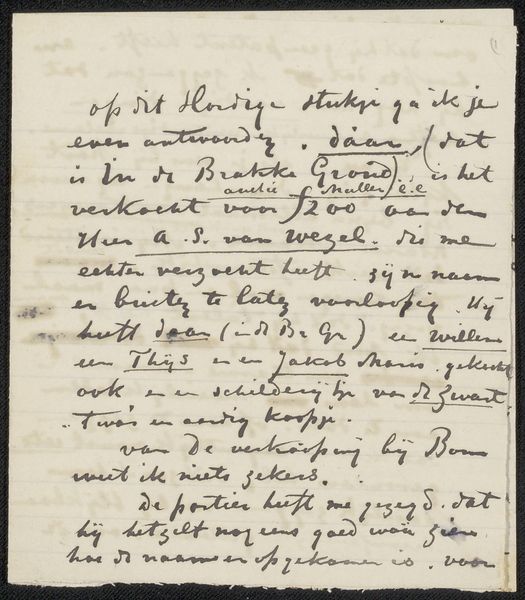 op dit slordige stukje ga ik je
even antwoorden. daar, (dat
is In de Brakke Grond), is het
auctie Muller e.e
verkocht voor ƒ200 aan den
Heer A. S. van Wezel. die me
echter verzocht heeft. zijn naam
er buiten te laten voorloopig. Hij
heeft daar (in d Br Gr) een Willem
een Thijs en en Jakob Maris. gekocht
ook en en schilderijtje van de Zwart
't was en aardig koopje.
van De verkooping bij Bom
weet ik niets zekers.
De portier heeft me gezegd. dat
hij hetzelf nog eens goed wou zien.
hoe de naam er op gekomen is. voor